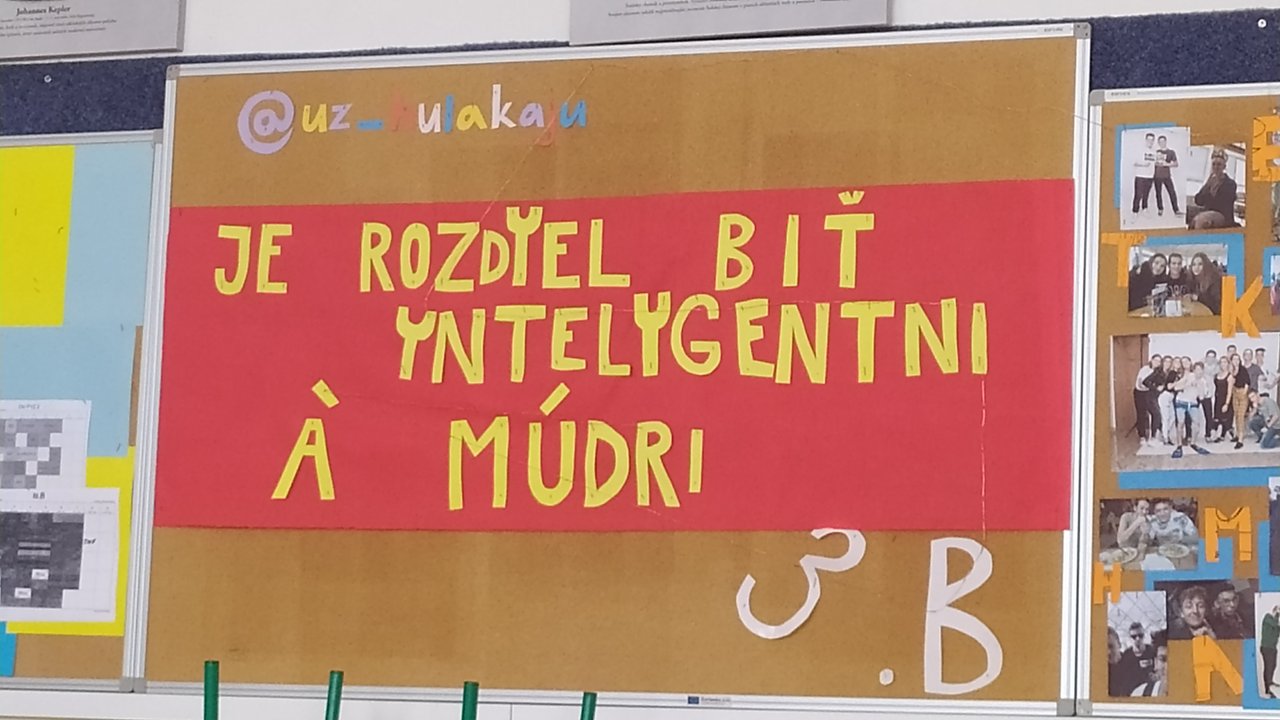 Johannes Kepler
@uz_hulakaju
JE ROZDYEL BIŤ
YNTELYGENTNI
À MÚDRI
3.B
II.B
T
K
M
H
N